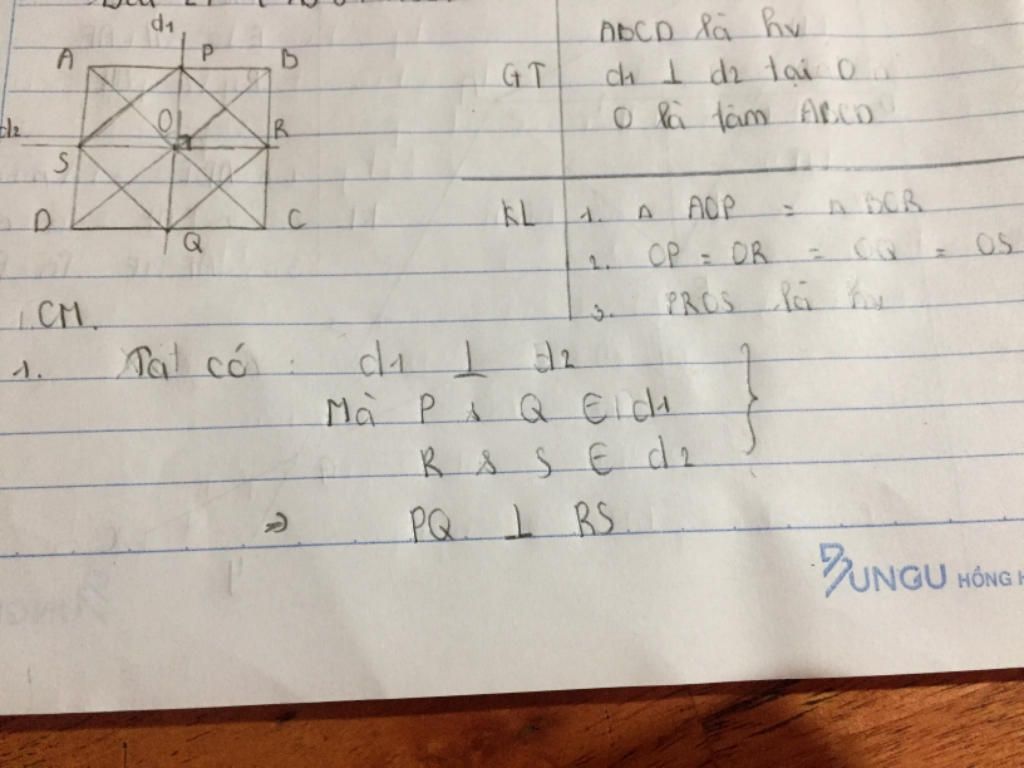 d1
A P B
d2 O R
S
D Q C
ABCD là hv
GT d1 ⊥ d2 tại O
O là tâm ABCD
KL 1. △ AOP = △ BOR
2. OP = OR = OQ = OS
3. PRQS là hv
CM.
1. Ta có : d1 ⊥ d2
Mà P & Q ∈ d1
R & S ∈ d2
⇒ PQ ⊥ RS
BUNGU HỒNG H